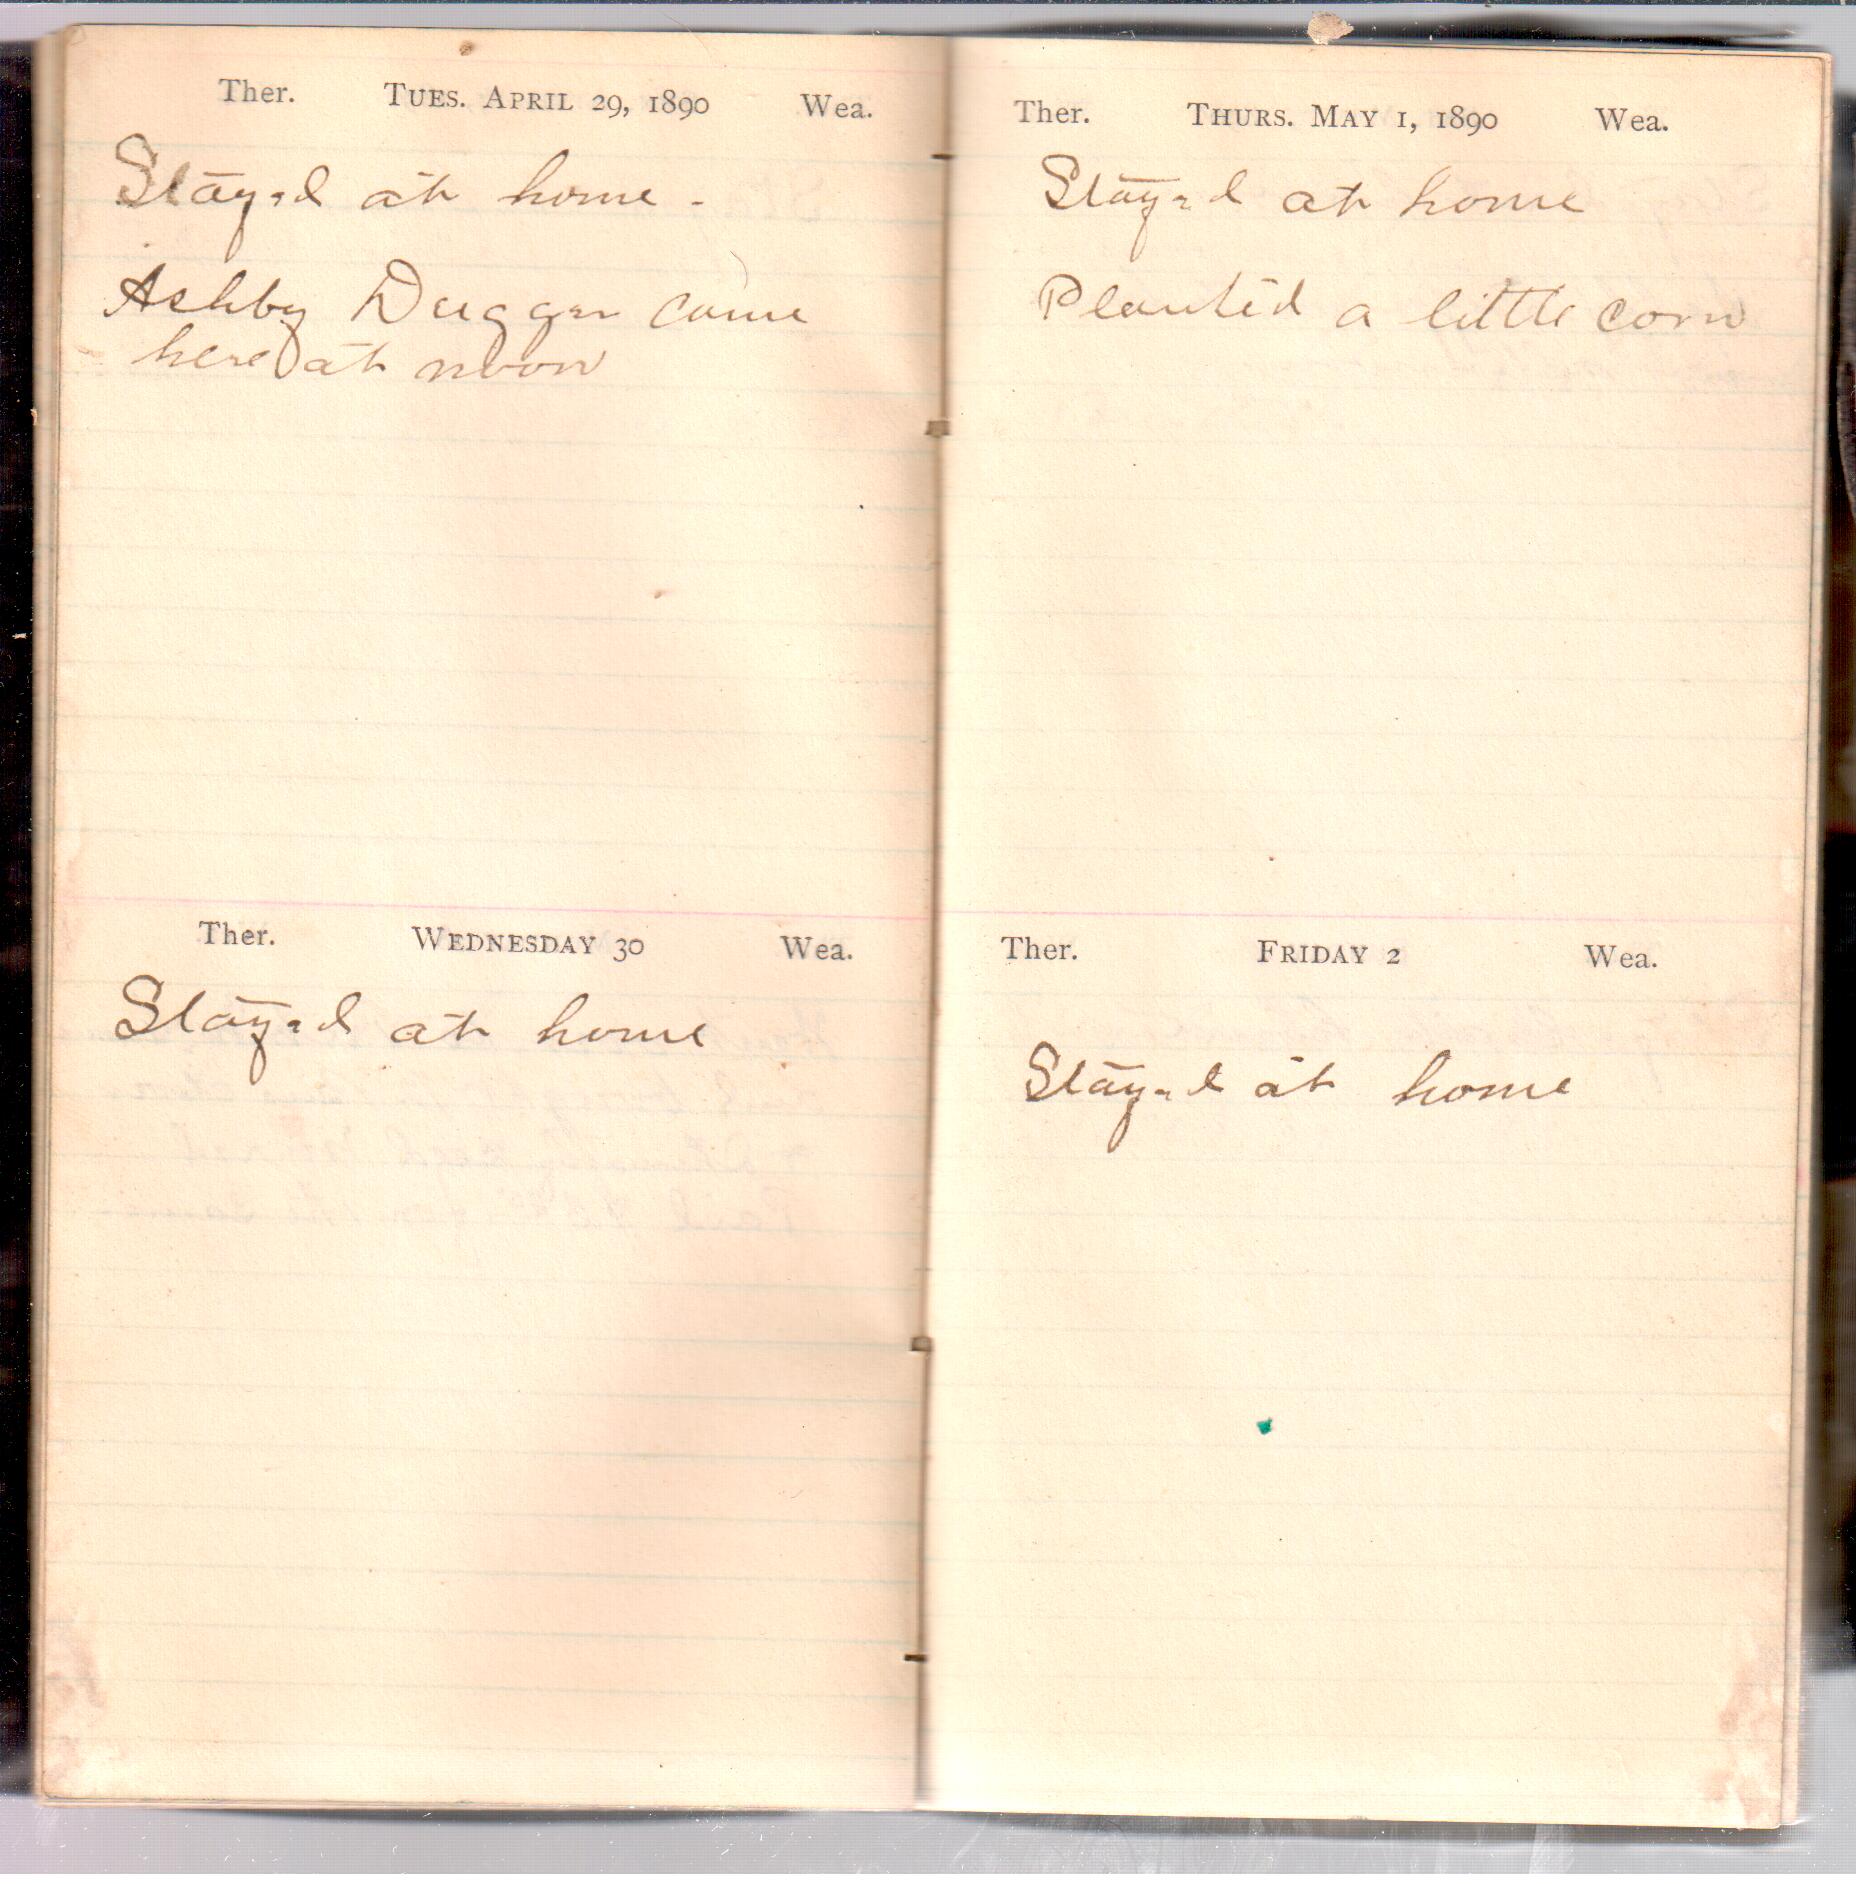 Ther. TUES. APRIL 29, 1890 Wea.
Stayed at home -
Ashby Dugger came
here at noon
Ther. WEDNESDAY 30 Wea.
Stayed at home
Ther. THURS. MAY 1, 1890 Wea.
Stayed at home
Planted a little corn
Ther. FRIDAY 2 Wea.
Stayed at home